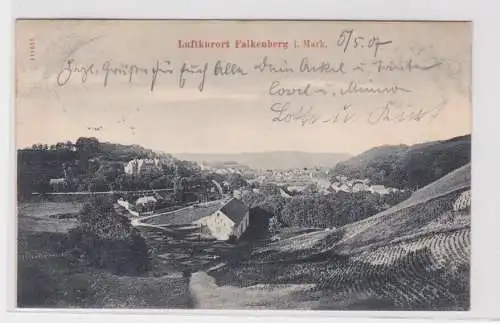 Luftkurort Falkenberg i. Mark.
5/5.07
Herzl. Grüße für Euch Alle Dein Onkel u. Tante
u. Minna
Lotte u. Kurt